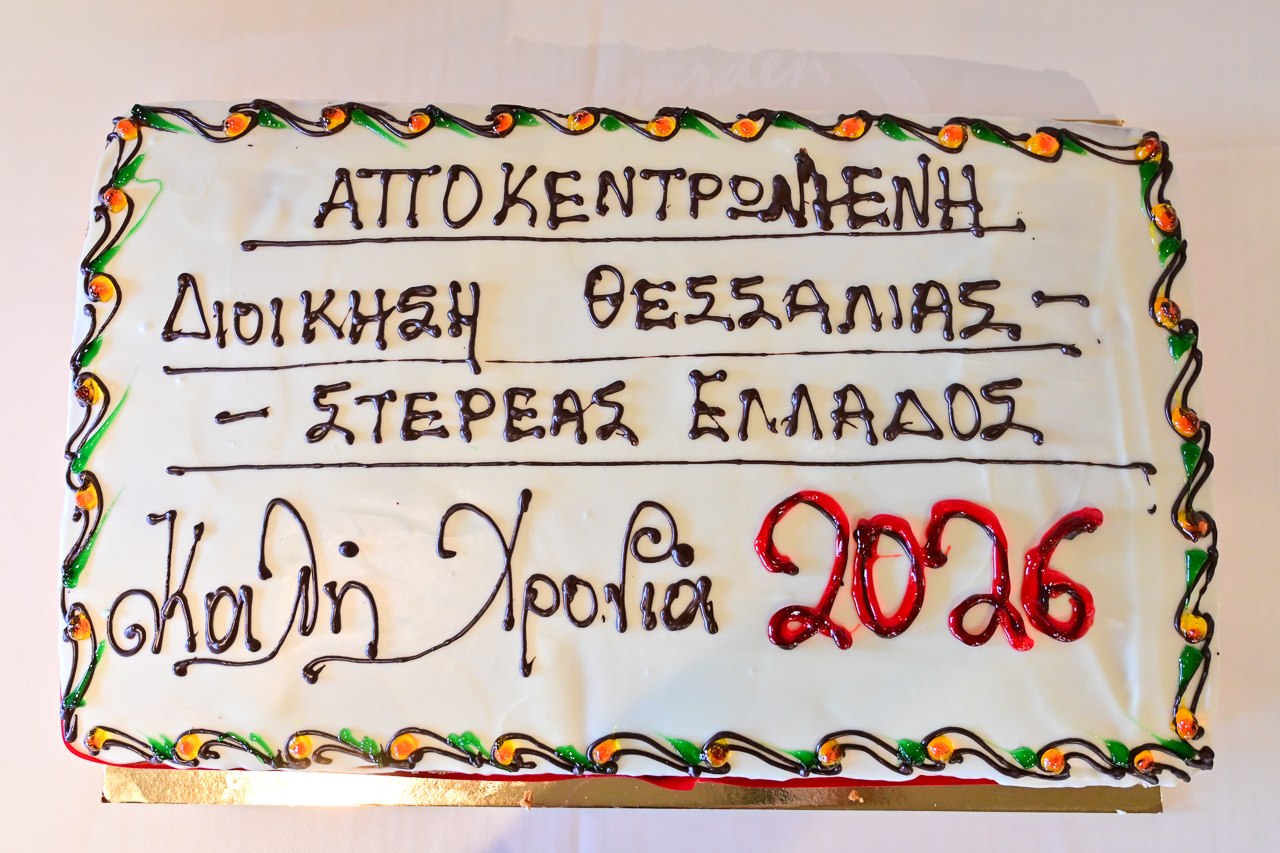 ΑΠΟΚΕΝΤΡΩΜΕΝΗ
ΔΙΟΙΚΗΣΗ ΘΕΣΣΑΛΙΑΣ -
- ΣΤΕΡΕΑΣ ΕΛΛΑΔΟΣ
Καλή Χρονιά 2026